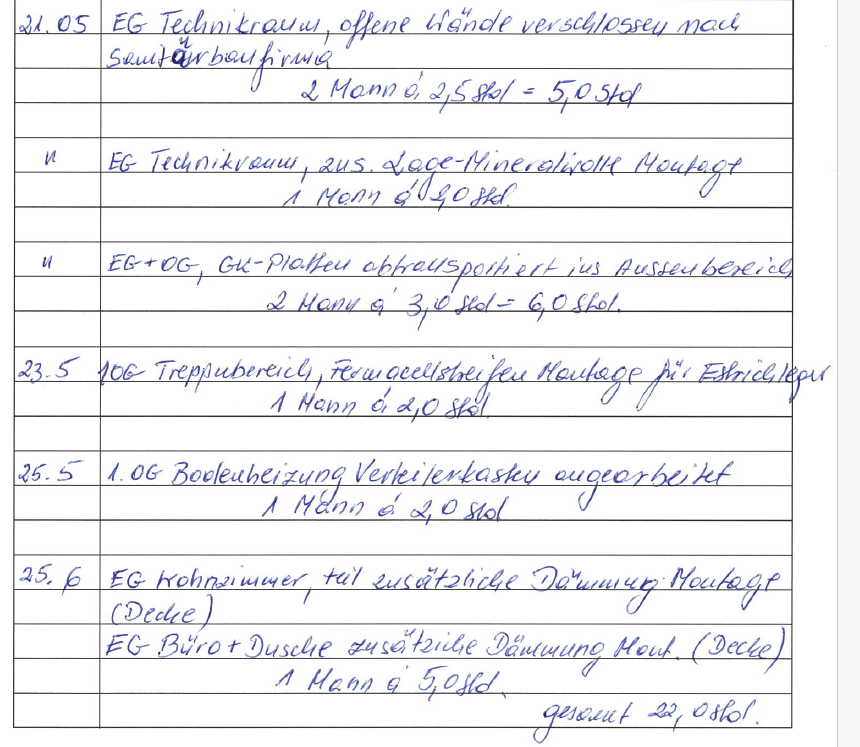 21.05 EG Technikraum, offene Wände verschlossen nach
Sanitärbaufirma
2 Mann á 2,5 Std = 5,0 Std
" EG Technikraum, zus. Lage-Mineralwolle Montage
1 Mann á 2,0 Std.
" EG+OG, GK-Platten abtransportiert ins Aussenbereich
2 Mann á 3,0 Std = 6,0 Std.
23.5 1OG Treppenbereich, Fermacellstreifen Montage für Estrichleger
1 Mann á 2,0 Std
25.5 1.OG Bodenheizung Verteilerkasten angearbeitet
1 Mann á 2,0 Std
25.6 EG Wohnzimmer, teil zusätzliche Dämmung Montage
(Decke)
EG Büro + Dusche zusätzliche Dämmung Mont. (Decke)
1 Mann á 5,0 Std.
gesamt 22,0 Std.